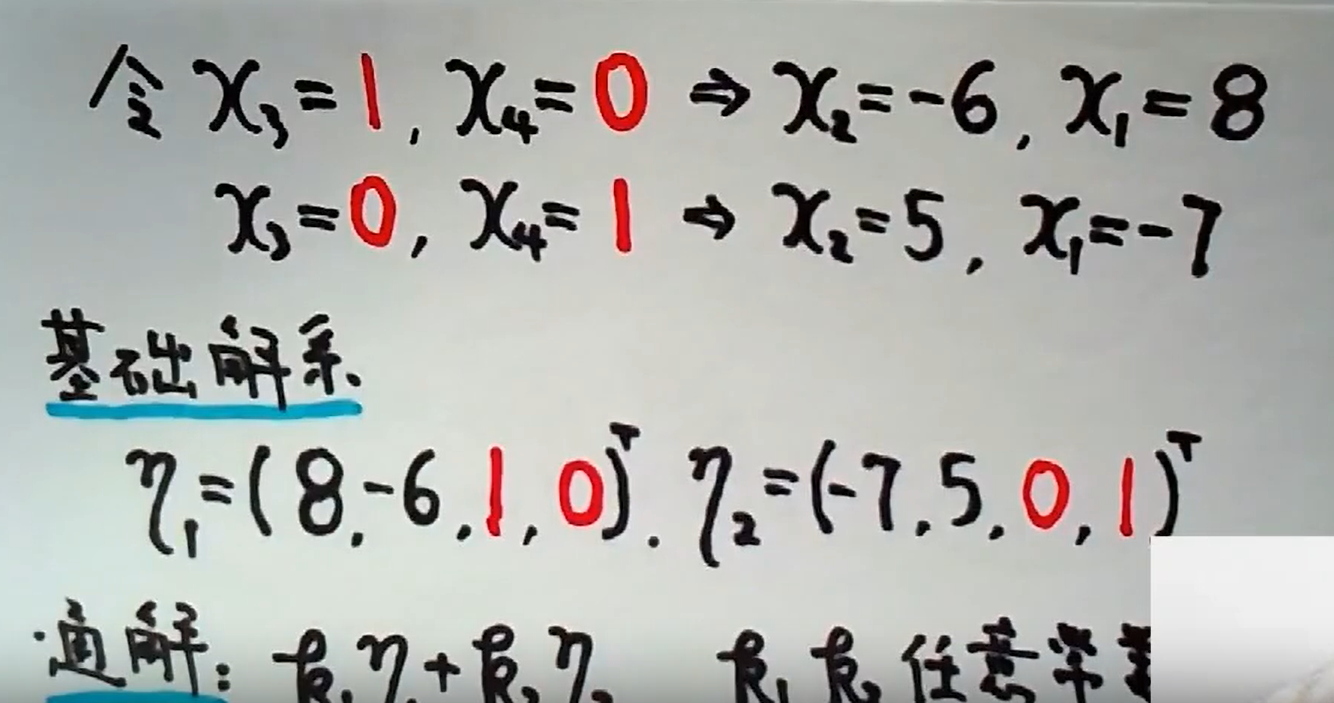 令 x₃=1, x₄=0 ⇒ x₂=-6, x₁=8
x₃=0, x₄=1 ⇒ x₂=5, x₁=-7
基础解系
η₁=(8,-6,1,0)ᵀ. η₂=(-7,5,0,1)ᵀ
通解: k₁η₁+k₂η₂ k₁ k₂ 任意常